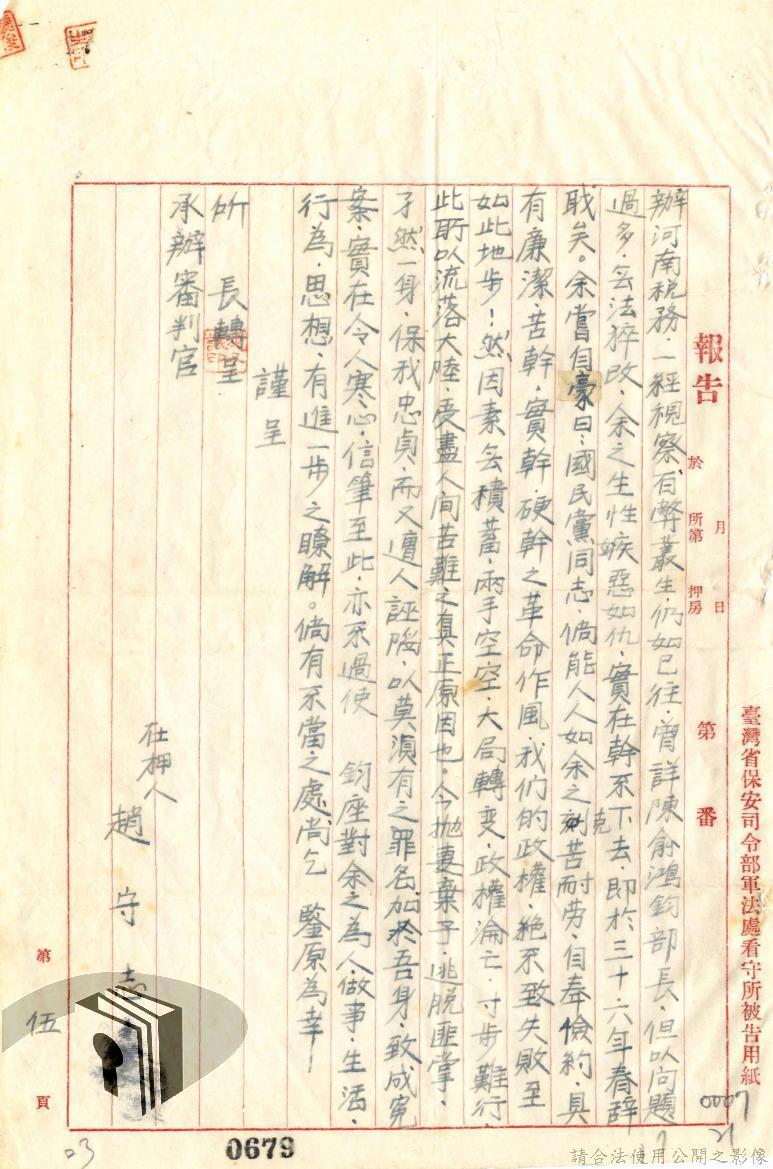 臺灣省保安司令部軍法處看守所被告用紙
報告
於
所第
押房
月
日
第
番
辦河南稅務·一經視察·百弊叢生·仍如已往·曾詳陳俞鴻鈞部長·但以問題
過多·無法猝改·余之生性嫉惡如仇·實在幹不下去·即於三十六年春辭
職矣。余嘗自豪曰·國民黨同志·倘能人人如余之刻克苦耐勞·自奉儉約·具
有廉潔·苦幹·實幹·硬幹之革命作風·我们的政權·絕不致失敗至
如此地步！然因素無積蓄·兩手空空·大局轉变·政權淪亡·寸步難行·
此所以流落大陸·受盡人间苦難之真正原因也·今拋妻棄子·逃脫匪掌·
孑然一身·保我忠貞·而又遭人誣陷·以莫須有之罪名·加於吾身·致成冤
案·實在令人寒心·信筆至此·亦不過使 鈞座對余之為人·做事·生活·
行為·思想·有進一步之瞭解。倘有不當之處·尚乞 鑒原為幸！
謹呈
所長轉呈
承辦審判官
在押人
趙守志
第
伍
頁
0007
21
23
0679
請合法使用公開之影像